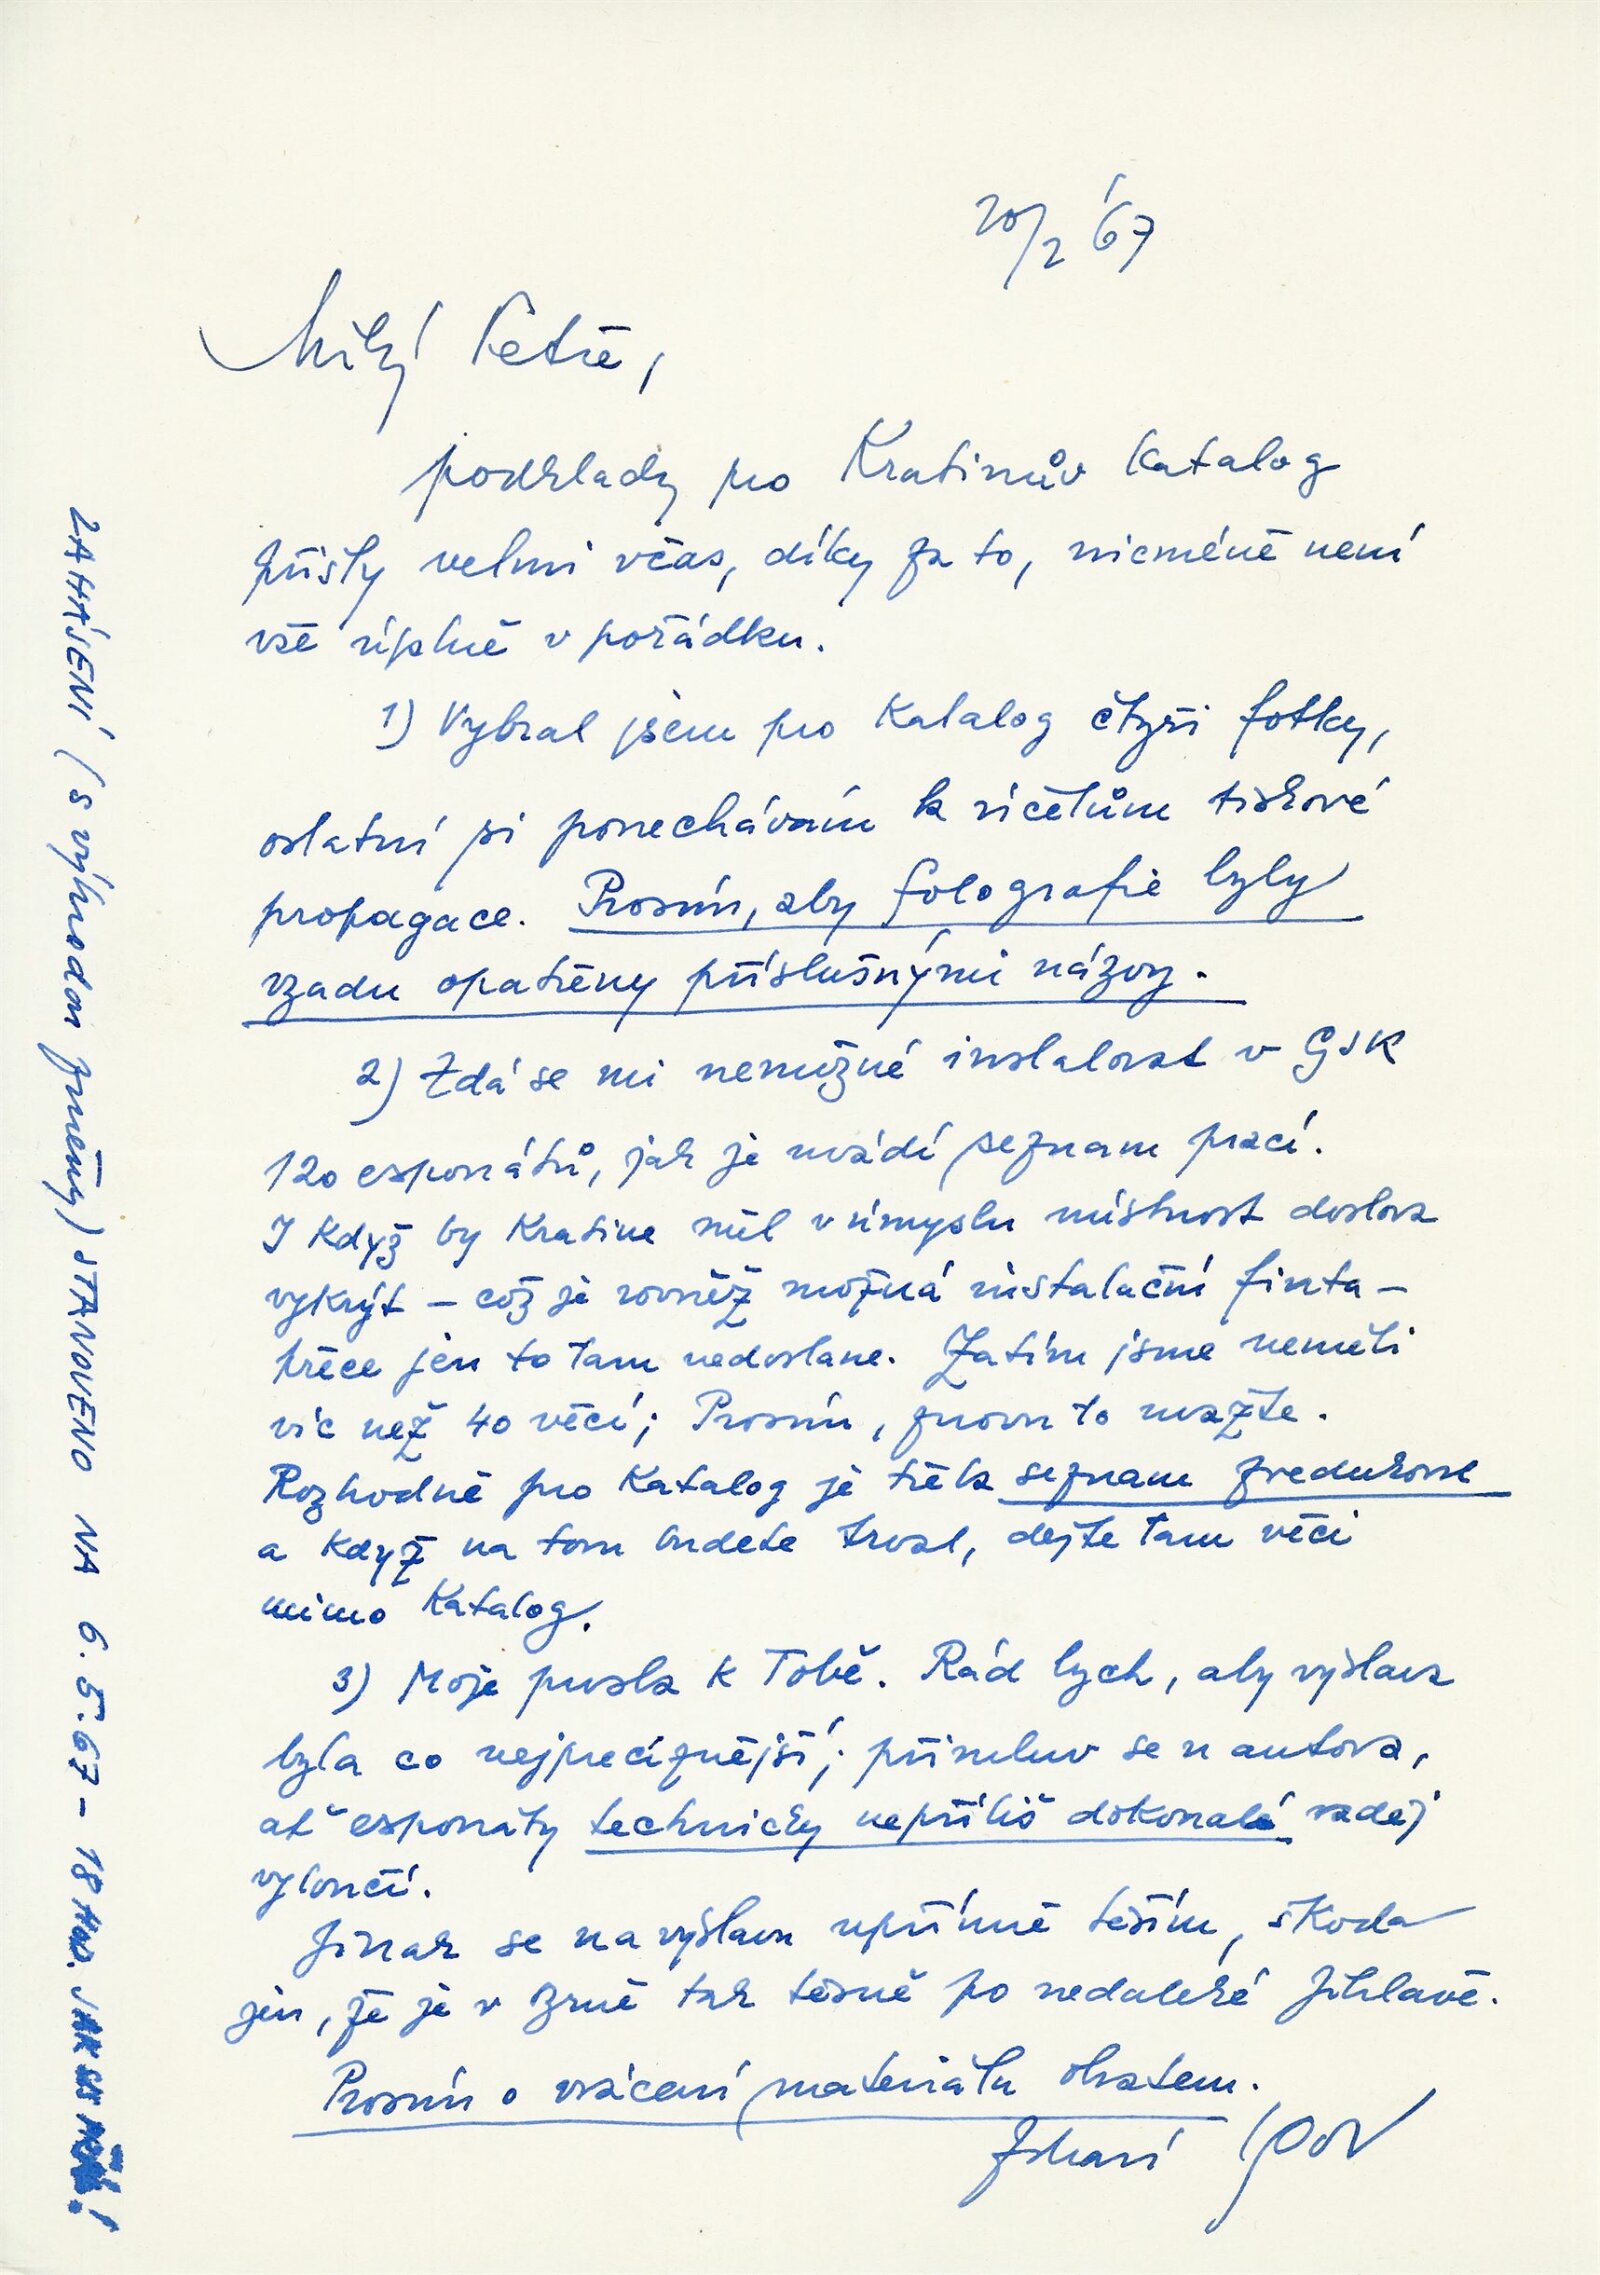 20/2 67
Milý Petře,
podklady pro Kratinův katalog
přišly velmi včas, díky za to, nicméně není
vše úplně v pořádku.
1) Vybral jsem pro katalog čtyři fotky,
ostatní si ponechávám k účelům tiskové
propagace. Prosím, aby fotografie byly
vzadu opatřeny příslušnými názvy.
2) Zdá se mi nemožné instalovat v GJK
120 exponátů, jak je uvádí seznam prací.
I když by Kratina měl v úmyslu místnost doslova
vykrýt – což je rovněž možná instalační finta –
přece jen to tam nedostane. Zatím jsme neměli
víc než 40 věcí; Prosím, znovu to uvažte.
Rozhodně pro katalog je třeba seznam zredukovat
a když na tom budete trvat, dejte tam věci
mimo katalog.
3) Moje prosba k Tobě. Rád bych, aby výstava
byla co nejprecíznější; přimluv se u autora,
ať exponáty technicky nepříliš dokonalé raději
vyloučí.
Jinak se na výstavu upřímně těším, škoda
jen, že je v Brně tak těsně po nedaleké Jihlavě.
Prosím o vrácení materiálu obratem.
Zdraví
ZAHÁJENÍ (s výhodou změny) STANOVENO NA 6.5.67 – 18 HOD.